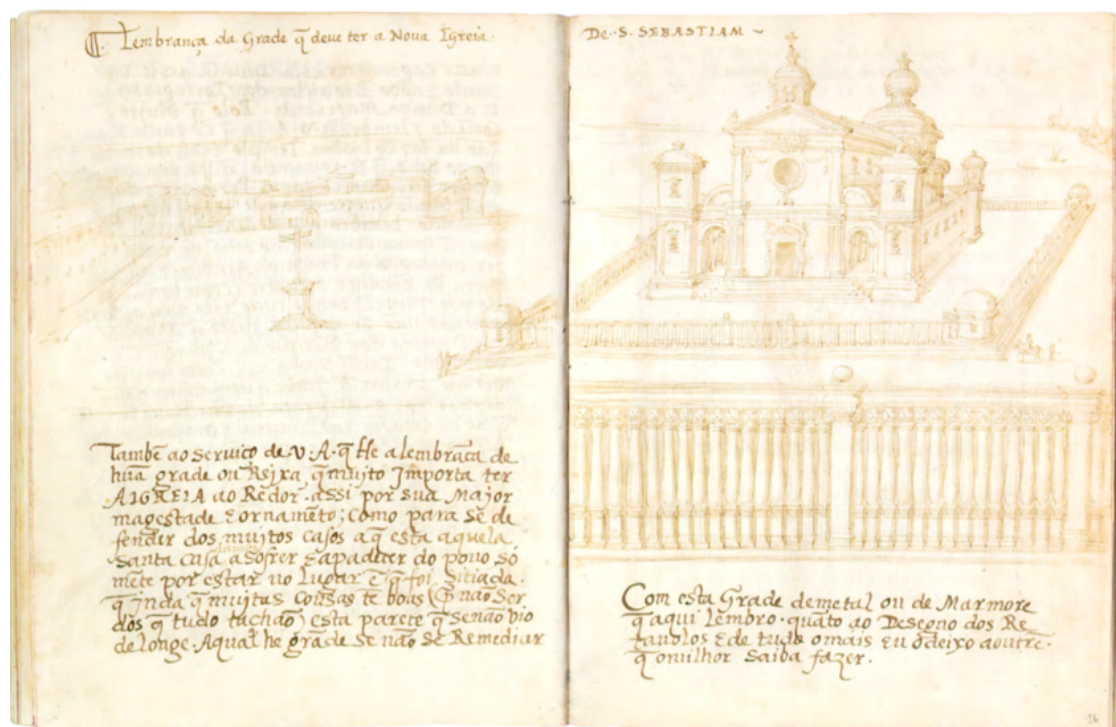 Lembrança da Grade q̃ deve ter a Nova Igreia.
Tambẽ ao serviço de V.A. q̃ He a lembraça de
huã grade ou Rejxa q̃ mujto Jmporta ter
AIGREIA ao Redor. assi por sua Major
magestade E ornamẽto; Como para se de
fender dos mujtos casos a q̃ esta aquela
santa casa a sofrer E apadecer do povo só
mẽte por estar no Lugar ẽ q̃ foi sitiada.
q̃ jnda q̃ mujtas Cousas tẽ boas (q̃ não ser
dos q̃ tudo tachão) esta parece q̃ senão vio
de longe. Aqual he grãde se não se Remediar
DE. S. SEBASTIAM ~
Com esta Grade de metal ou de Marmore
q̃ aqui Lembro. quãto ao Desegno dos Re
tavolos E de tudo o mais Eu o deixo a outrẽ.
q̃ o milhor Saiba fazer.
26